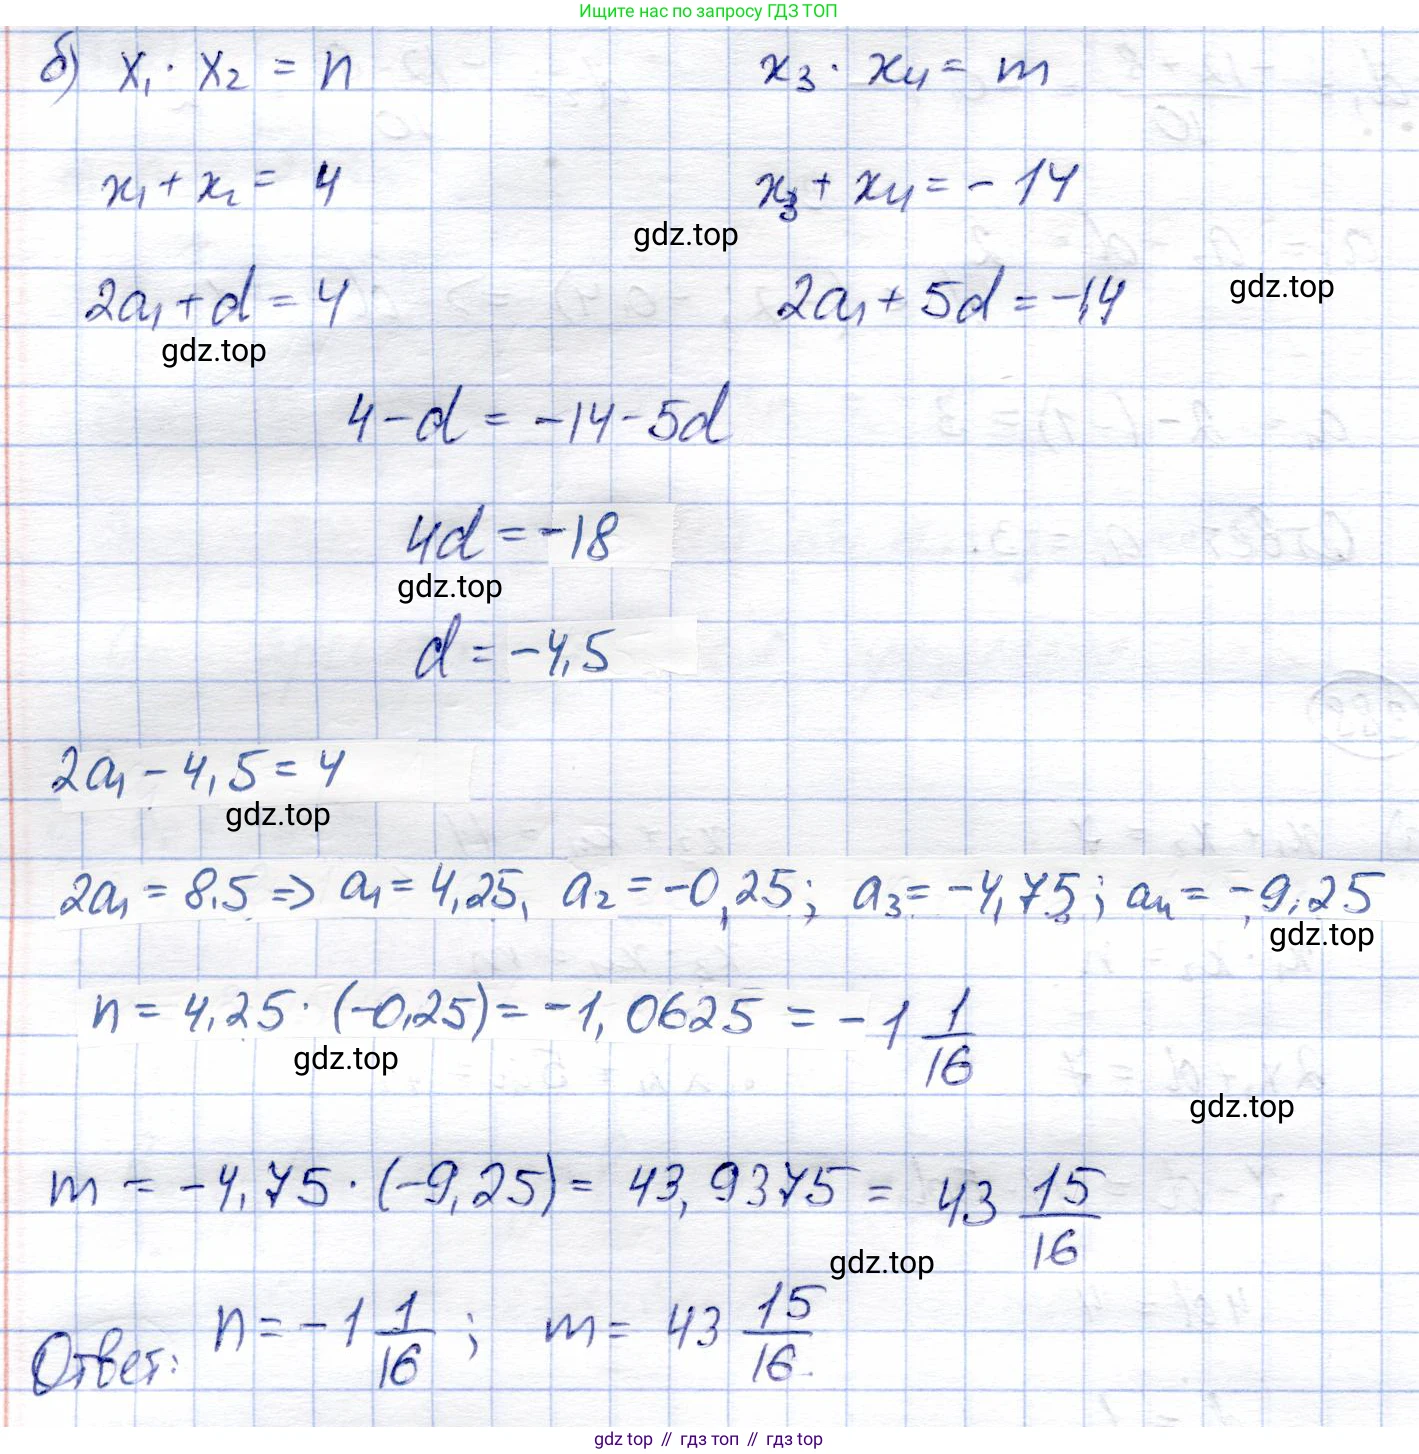 Ищите нас по запросу ГДЗ ТОП
б) x₁ · x₂ = n x₃ · x₄ = m
x₁ + x₂ = 4 x₃ + x₄ = - 14
gdz.top
2a₁ + d = 4 2a₁ + 5d = -14
gdz.top
gdz.top
4 - d = -14 - 5d
4d = -18
gdz.top
d = -4,5
2a₁ - 4,5 = 4
gdz.top
2a₁ = 8,5 => a₁ = 4,25, a₂ = -0,25; a₃ = -4,75; a₄ = -9,25
gdz.top
n = 4,25 · (-0,25) = -1,0625 = -1 1/16
gdz.top
gdz.top
m = -4,75 · (-9,25) = 43,9375 = 43 15/16
gdz.top
Ответ: n = -1 1/16 ; m = 43 15/16.
gdz top // гдз топ // gdz top